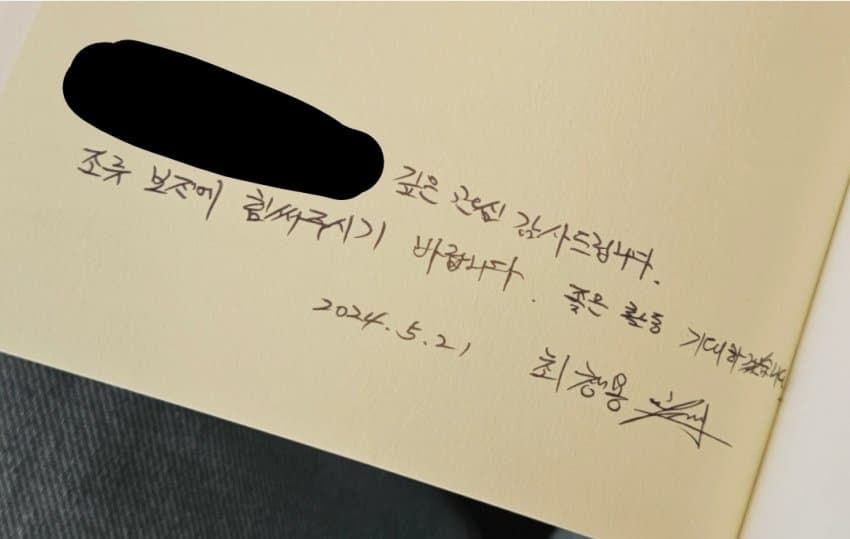 깊은 관심 감사드립니다.
조류 보전에 힘써주시기 바랍니다. 좋은 활동 기대하겠습니다
2024.5.21 최창용